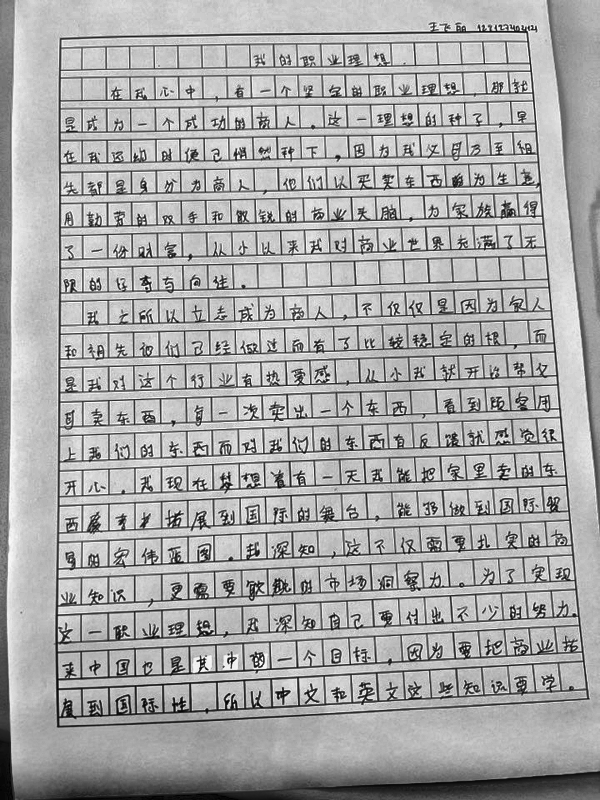 王飞
我的职业理想
在我心中，有一个坚定的职业理想，那就
是成为一个成功的商人。这一理想的种子，早
在我还幼时便已悄然种下，因为我父母乃至祖
先都是身分为商人，他们以买卖东西的为生意，
用勤劳的双手和敏锐的商业头脑，为家族赢得
了一份财富，从小以来我对商业世界充满了无
限的好奇与向往。
我之所以立志成为商人，不仅仅是因为家人
和祖先他们已经做过而有了比较稳定的根，而
是我对这个行业有热爱感，从小我就开始帮父
母卖东西，每一次卖出一个东西，看到顾客用
上我们的东西而对我们的东西有反馈就感觉很
开心。我现在梦想着有一天我能把家里卖的东
西 拓展到国际的舞台，能够做到国际贸
易的宏伟蓝图。我深知，这不仅需要扎实的商
业知识，更需要敏锐的市场洞察力。为了实现
这一职业理想，我深知自己要付出不少的努力。
来中国也是其中的一个目标，因为要把商业拓
展到国际性，所以中文和英文这些知识要学。